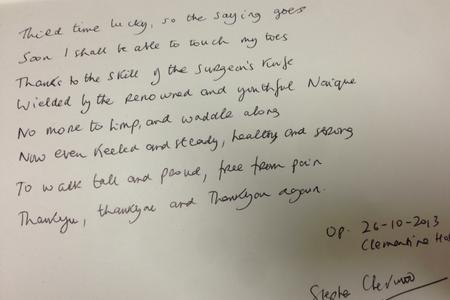 Third time lucky, so the saying goes
Soon I shall be able to touch my toes
Thanks to the skill of the surgeon's knife
Wielded by the renowned and youthful
No more to limp, and waddle along
Now even keeled and steady, healthy and strong
To walk tall and proud, free from pain
Thankyou, thankyou and Thankyou again.
Op. 26-10-2013
Clementine